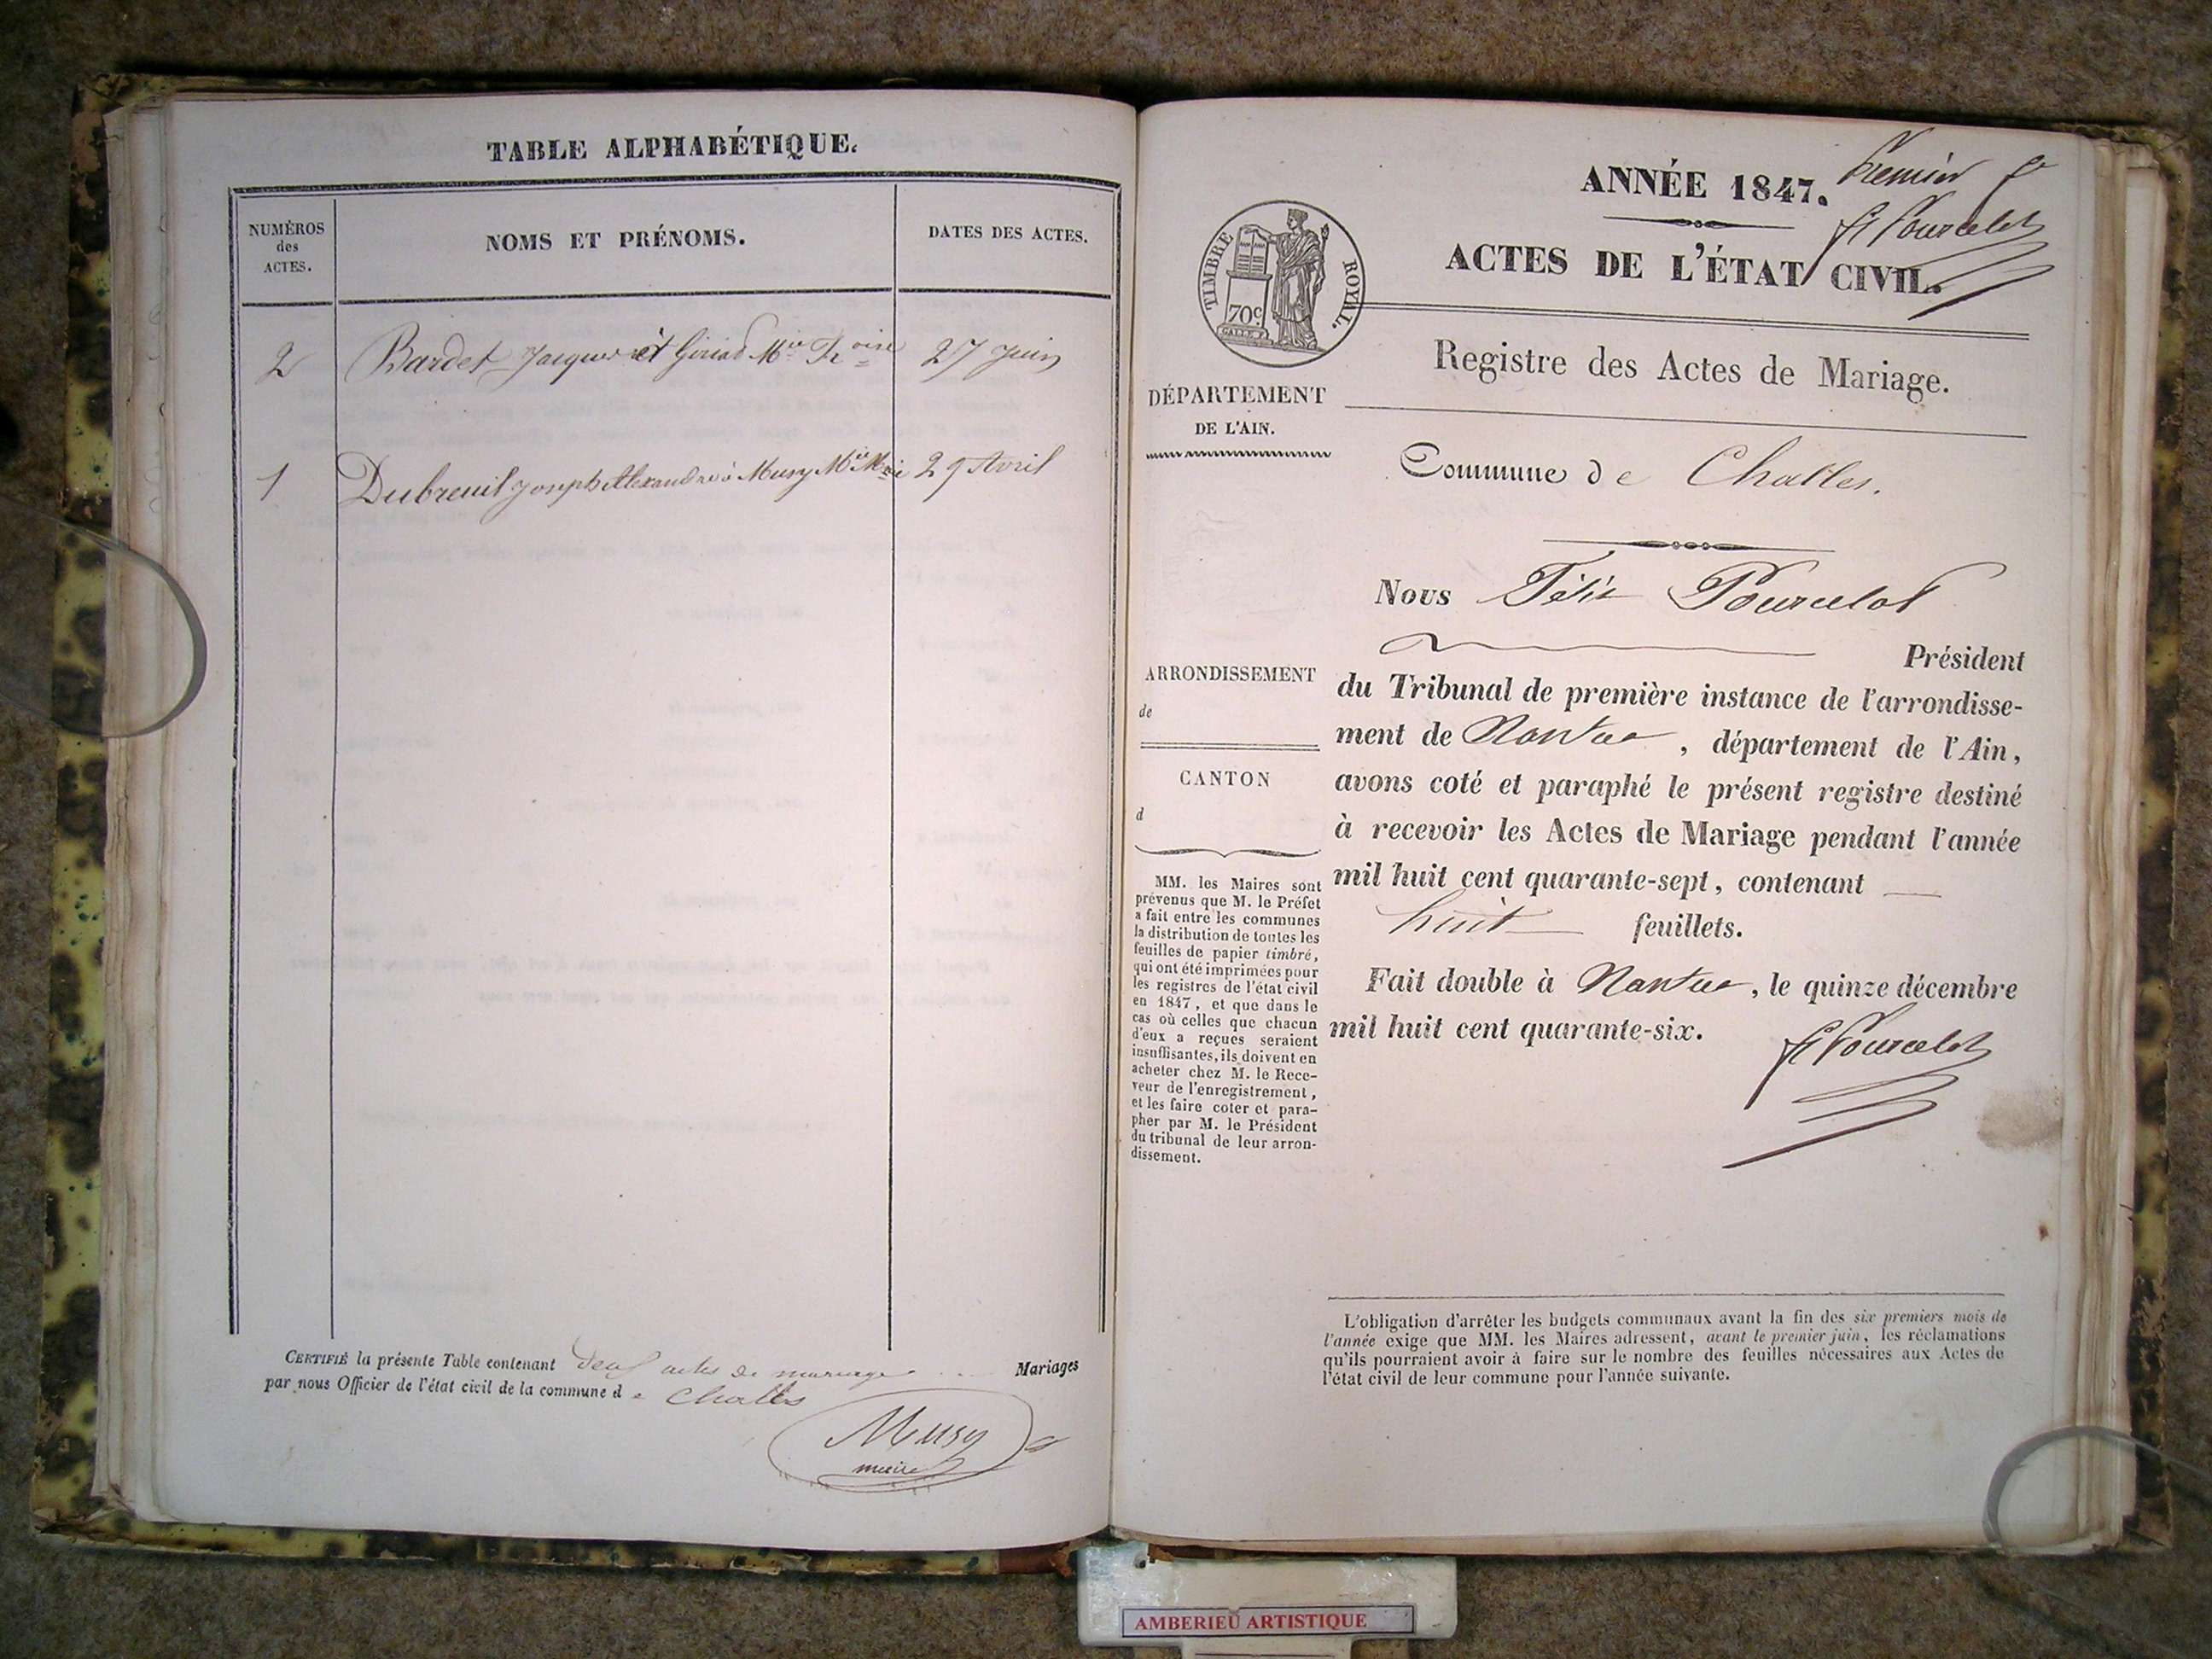 TABLE ALPHABÉTIQUE.
NUMÉROS
des
ACTES.
NOMS ET PRÉNOMS.
DATES DES ACTES.
2 Bardet Jacques et Giriad Mie Froise 27 Juin
1 Dubreuil Joseph Alexandre à Musy Mie 29 Avril
CERTIFIÉ la présente Table contenant deux actes de mariage Mariages
par nous Officier de l'état civil de la commune de Challes
Musy
maire
ANNÉE 1847.
Premier
F Pourcelot
ACTES DE L'ÉTAT CIVIL.
TIMBRE ROYAL.
70c
Registre des Actes de Mariage.
DÉPARTEMENT
DE L'AIN.
Commune de Challes.
Nous Félix Pourcelot
Président
du Tribunal de première instance de l'arrondisse-
ment de Nantua, département de l'Ain,
avons coté et paraphé le présent registre destiné
à recevoir les Actes de Mariage pendant l'année
mil huit cent quarante-sept, contenant
huit feuillets.
Fait double à Nantua, le quinze décembre
mil huit cent quarante-six.
F Pourcelot
ARRONDISSEMENT
de
CANTON
d
MM. les Maires sont
prévenus que M. le Préfet
a fait entre les communes
la distribution de toutes les
feuilles de papier timbré,
qui ont été imprimées pour
les registres de l'état civil
en 1847, et que dans le
cas où celles que chacun
d'eux a reçues seraient
insuffisantes, ils doivent en
acheter chez M. le Rece-
veur de l'enregistrement,
et les faire coter et para-
pher par M. le Président
du tribunal de leur arron-
dissement.
L'obligation d'arrêter les budgets communaux avant la fin des six premiers mois de
l'année exige que MM. les Maires adressent, avant le premier juin, les réclamations
qu'ils pourraient avoir à faire sur le nombre des feuilles nécessaires aux Actes de
l'état civil de leur commune pour l'année suivante.
AMBERIEU ARTISTIQUE